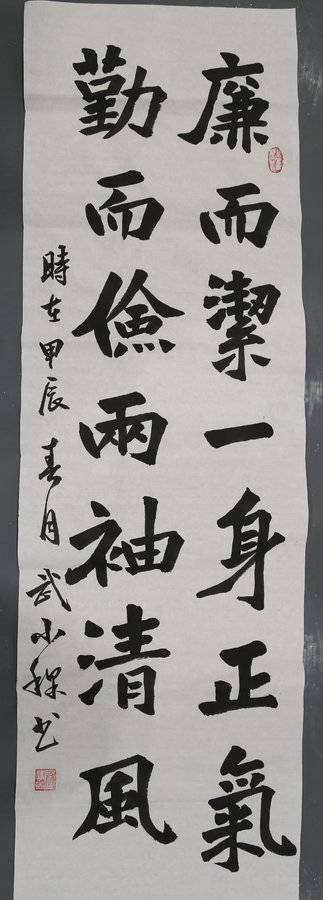 廉而潔一身正氣
勤而儉兩袖清風
時在甲辰春月武小猓书